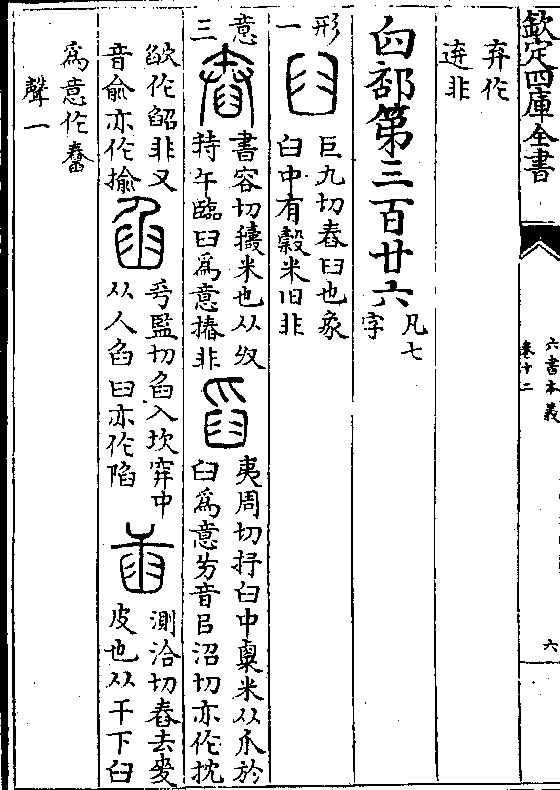 欽定四庫全書
六書本義
卷十二
六
弃作
𠦑非
臼部第三百廿六
凡七
字
形
一
巨九切舂臼也象
臼中有穀米旧非
意
三
書容切擣米也从𠬞
持午臨臼爲意摏非
夷周切抒臼中粟米从爪於
臼爲意旁音㠯沼切亦作抌
歈作㿽非又
音俞亦作揄
乎監切臽入坎穽中
从人臽臼亦作陷
測洽切舂去麥
皮也从干下臼
爲意作𦦱
聲一